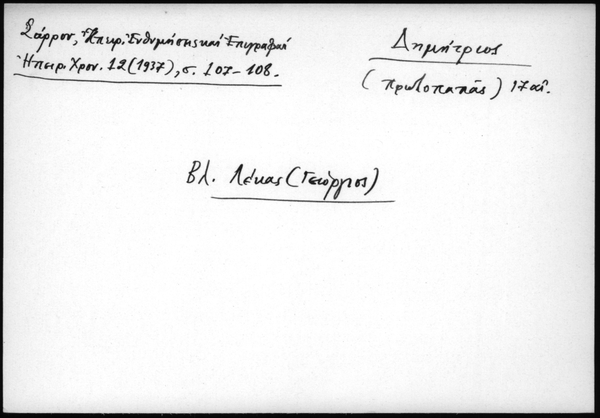 Σάρρου, Ἠπειρ. Ἐνθυμήσεις καί Ἐπιγραφαί
Ἠπειρ. Χρον. 12 (1937), σ. 107-108.
Δημήτριος
(πρωτοπαπᾶς) 17 αἰ.
Βλ. Λέκας (Γεώργιος)